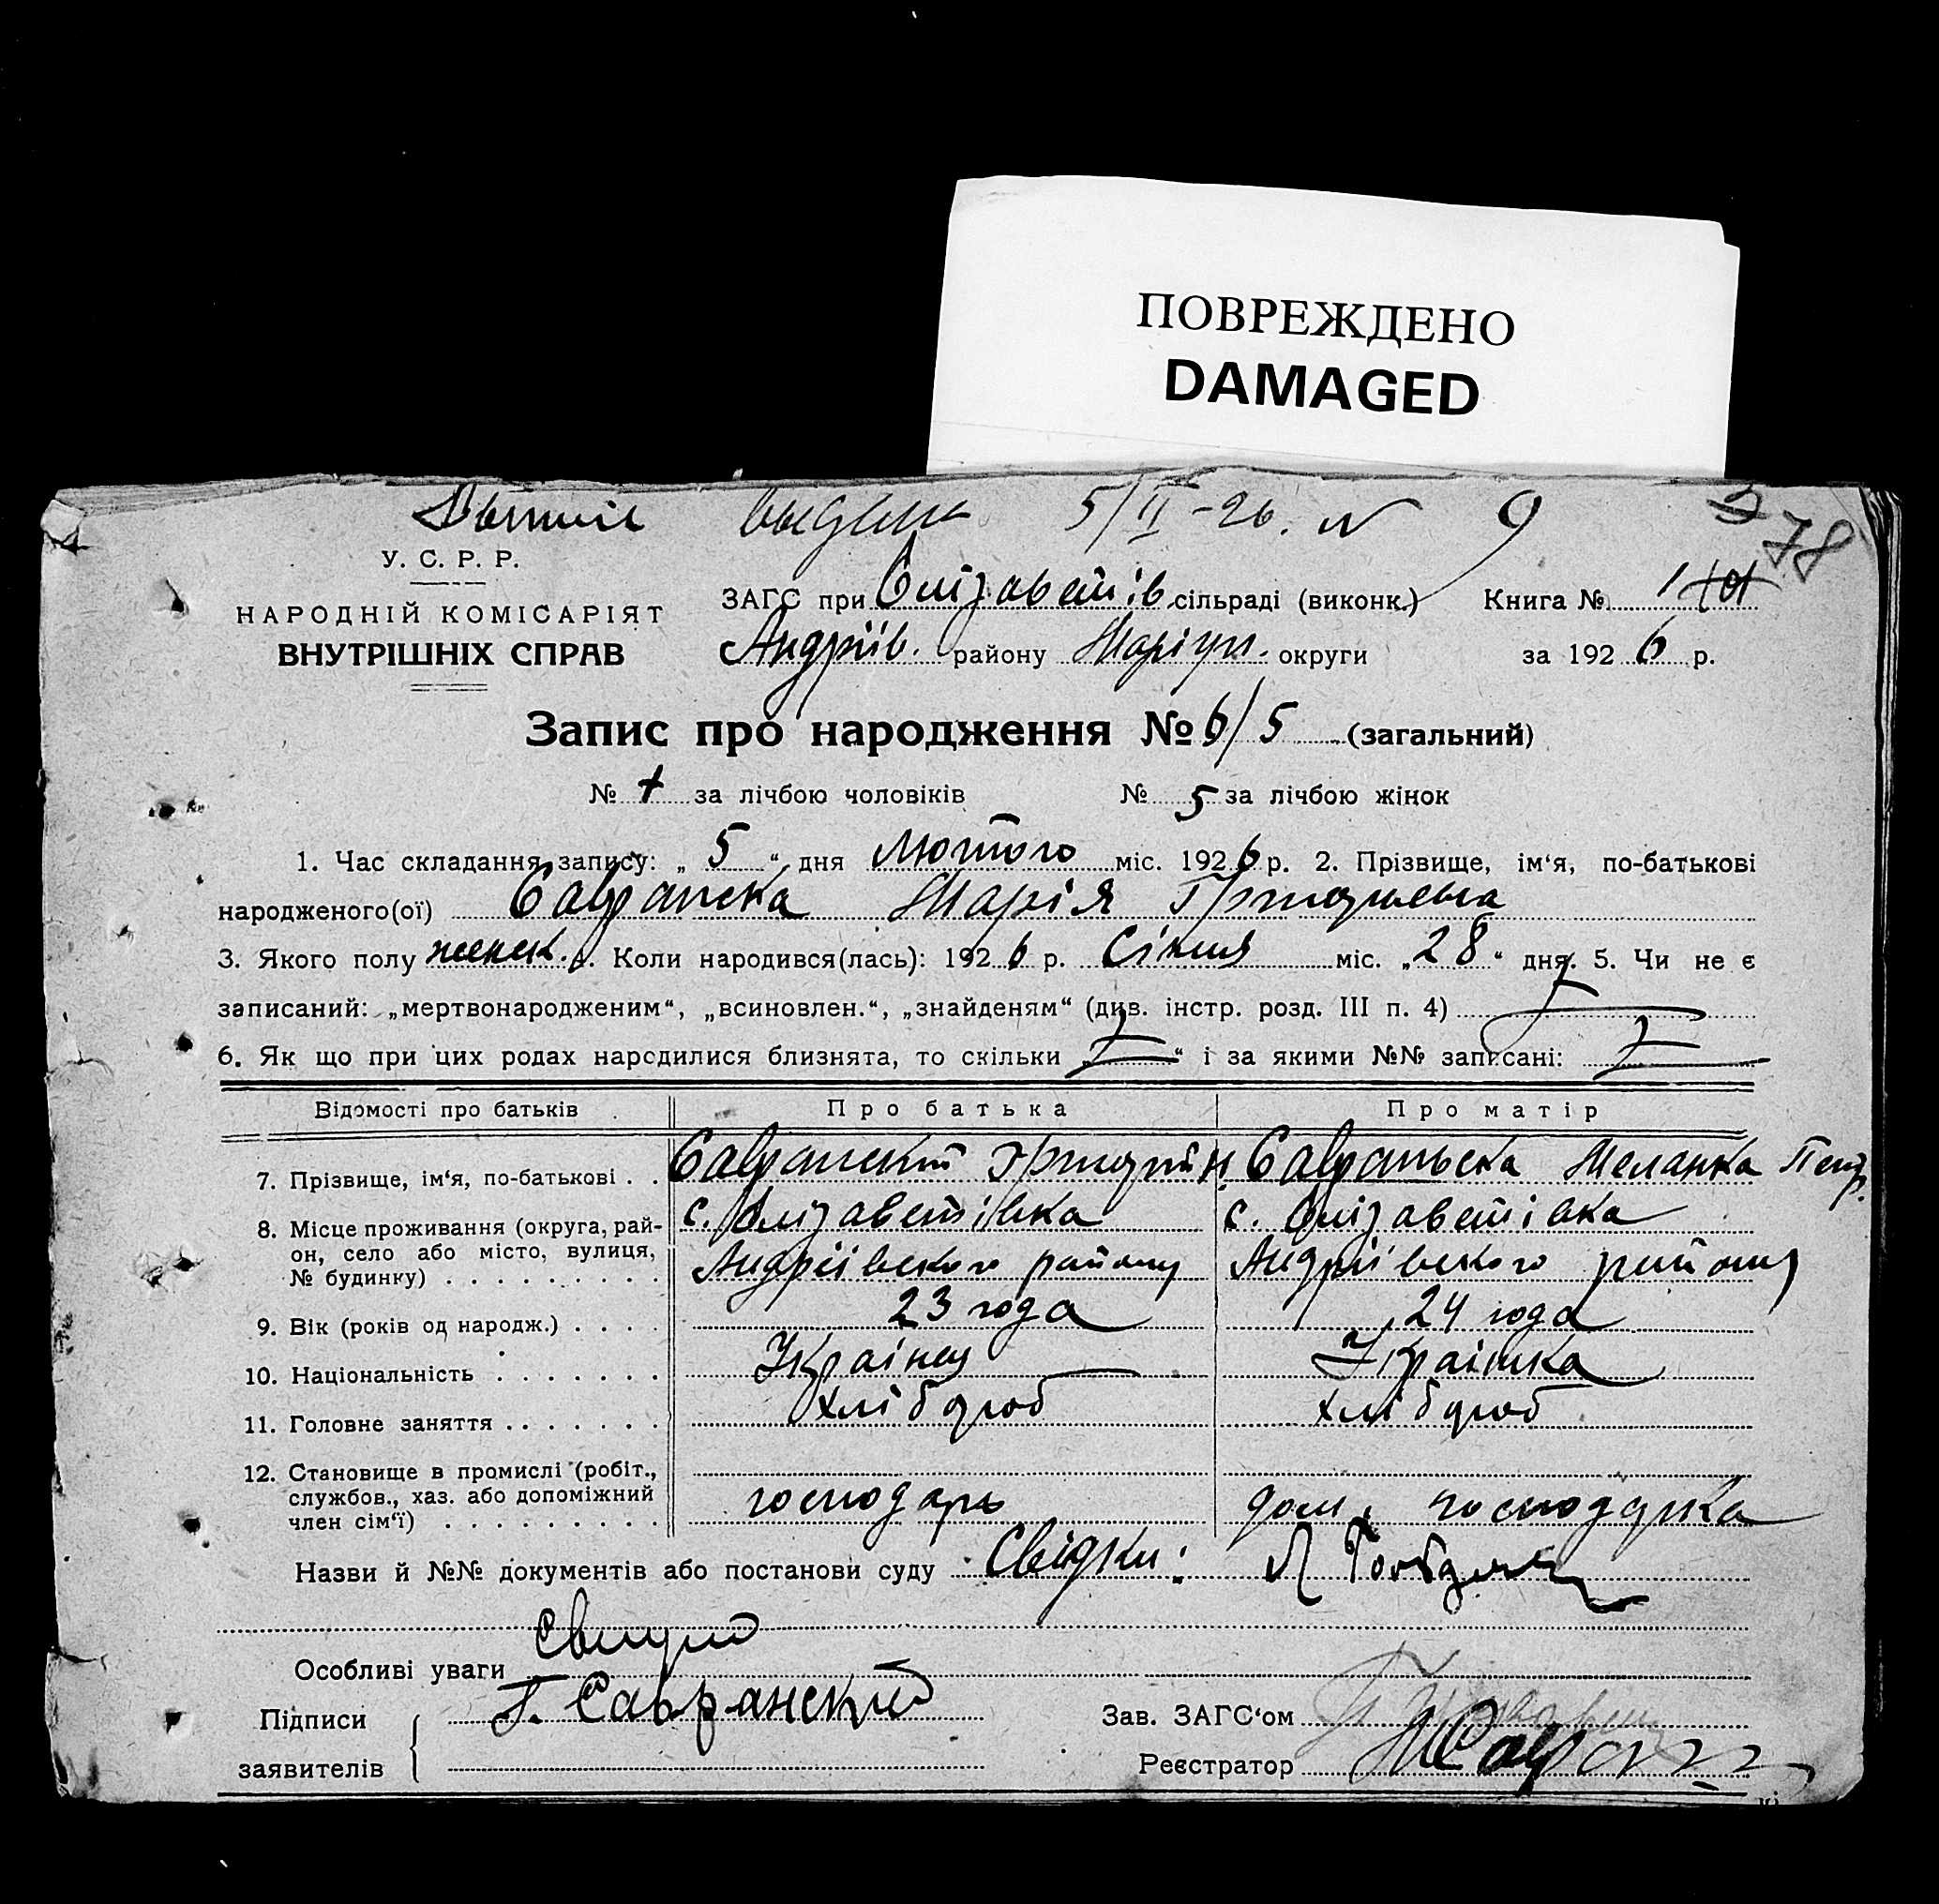 ПОВРЕЖДЕНО
DAMAGED
5/II-26. N 9
3
78
У. С. Р. Р.
НАРОДНІЙ КОМІСАРІЯТ
ВНУТРІШНІХ СПРАВ
ЗАГС при Єлізаветів. сільраді (виконк.) Книга № 1
Андріїв. району Маріуп. округи за 1926 р.
Запис про народження № 6/5 (загальний)
№ за лічбою чоловіків № 5 за лічбою жінок
1. Час складання запису: „5“ дня Лютого міс. 1926 р. 2. Прізвище, ім‘я, по-батькові
народженого(ої) Савранска Марія Григорьевна
3. Якого полу женск. Коли народився(лась): 1926 р. Січня міс. „28“ дня. 5. Чи не є
записаний: „мертвонародженим“, „всиновлен.“, „знайденям“ (див. інстр. розд. III п. 4)
6. Як що при цих родах народилися близнята, то скільки „ “ і за якими №№ записані:
Відомості про батьків Про батька Про матір
7. Прізвище, ім‘я, по-батькові . . Савранский Григорий Н. Савраньска Меланка Петр.
8. Місце проживання (округа, рай- с. Єлізаветівка с. Єлізаветівка
он, село або місто, вулиця,
№ будинку) . . . . . . . . . Андріївского району Андріївского району
9. Вік (років од народж.) . . . . 23 года 24 года
10. Національність . . . . . . . Українец Українка
11. Головне заняття . . . . . . . хлібороб хлібороб
12. Становище в промислі (робіт.,
службов., хаз. або допоміжний господарь дом. господарка
член сім‘ї) . . . . . . . . .
Назви й №№ документів або постанови суду Свідки:
Особливі уваги
Підписи Г. Савранский Зав. ЗАГС‘ом
заявителів Реєстратор